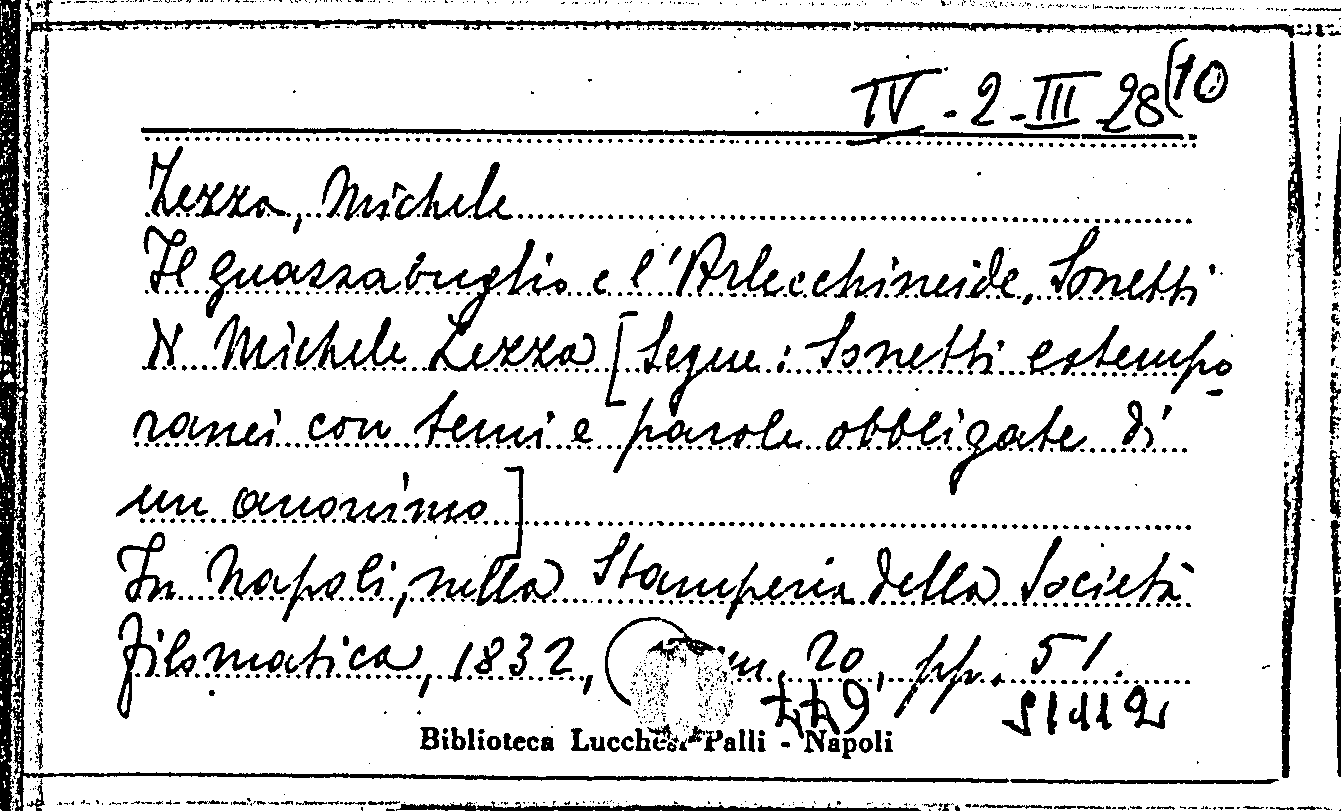 IV - 2 - III - 28 (10
Zezza, Michele
Il guazzabuglio e l'Arlecchineide. Sonetti
di Michele Zezza [Segue: Sonetti estempo
ranei con temi e parole obbligate di
un anonimo]
In Napoli, nella Stamperia della Società
filomatica, 1832, 20, pp. 51.
Biblioteca Lucchesi Palli - Napoli